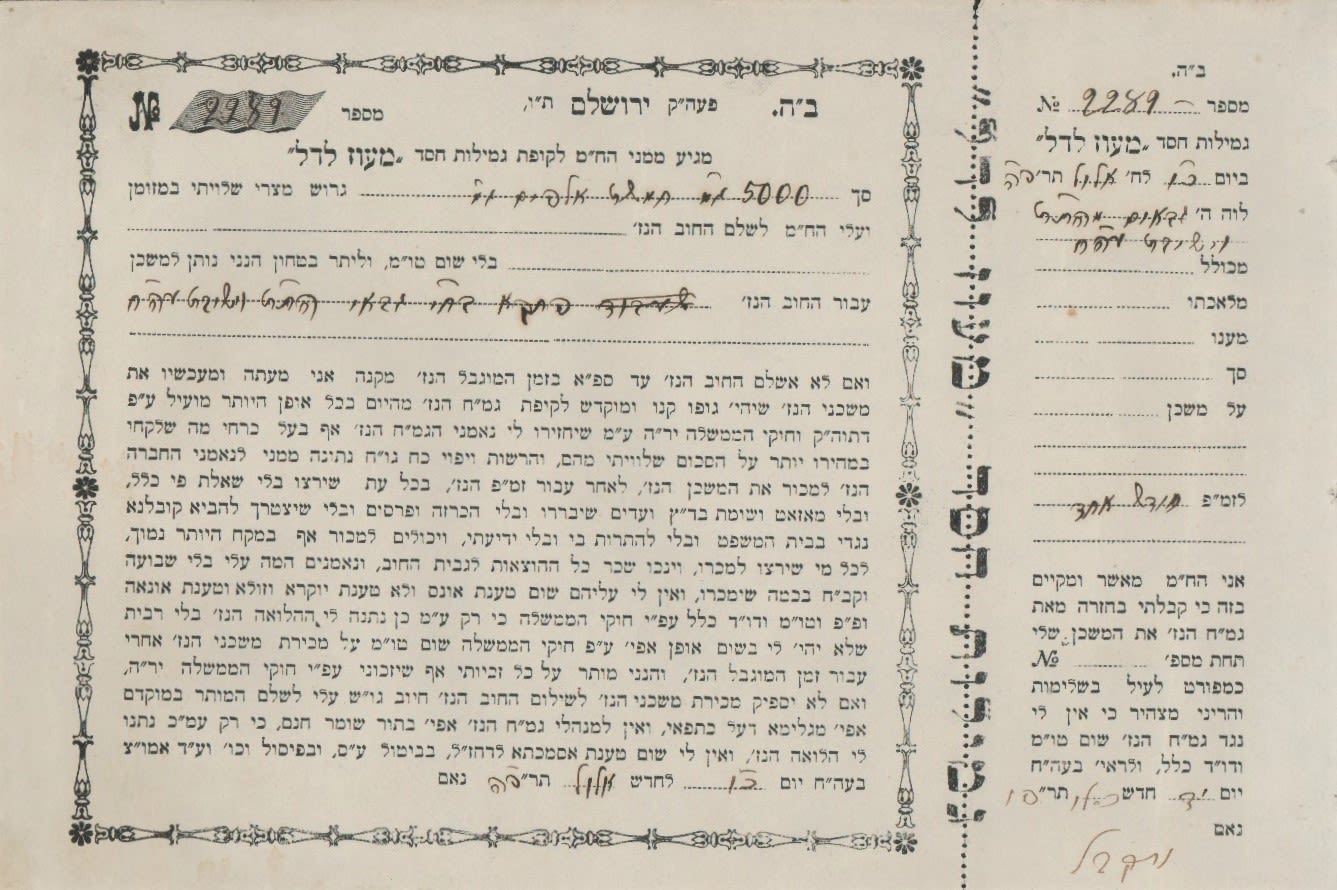 ב״ה. פעה״ק ירושלם ת״ו,
מספר № 2289
מגיע ממני הח״מ לקופת גמילות חסד „מעוז לדל״
סך 5000 חמשת אלפים גרוש מצרי שלויתי במזומן
ועלי הח״מ לשלם החוב הנז׳
בלי שום טו״מ, וליתר בטחון הנני נותן למשכן
עבור החוב הנז׳
ואם לא אשלם החוב הנז׳ עד ספ״א בזמן המוגבל הנז׳ מקנה אני מעתה ומעכשיו את
משכני הנז׳ שיהי׳ גופו קנו ומוקדש לקיפת גמ״ח הנז׳ מהיום בכל אופן היותר מועיל ע״פ
דתוה״ק וחוקי הממשלה יר״ה ע״מ שיחזירו לי נאמני הגמ״ח הנז׳ אף בעל כרחי מה שלקחי
במחירו יותר על הסכום שלוויתי מהם, והרשות ויפוי כח גו״ח נתינה ממני לנאמני החברה
הנז׳ למכור את המשכן הנז׳, לאחר עבור זמ״פ הנז׳, בכל עת שירצו בלי שאלת פי כלל,
ובלי מאזאט ושומת בד״ץ ועדים שיבררו ובלי הכרזה ופרסים ובלי שיצטרך להביא קובלנא
נגדי בבית המשפט ובלי להתרות בי ובלי ידיעתי, ויכולים למכור אף במקח היותר נמוך,
לכל מי שירצו למכרו, וינכו שכר כל ההוצאות לגבית החוב, ונאמנים המה עלי בלי שבועה
וקב״ח בכמה שימכרו, ואין לי עליהם שום טענת אונס ולא טענת יוקרא וזולא וטענת אונאה
ופ״פ וטו״מ ודו״ד כלל עפ״י חוקי הממשלה כי רק ע״מ כן נתנה לי ההלואה הנז׳ בלי רבית
שלא יהי׳ לי בשום אופן אפי׳ ע״פ חוקי הממשלה שום טו״מ על מכירת משכני הנז׳ אחרי
עבור זמן המוגבל הנז׳, והנני מותר על כל זכיותי אף שיזכוני עפ״י חוקי הממשלה יר״ה,
ואם לא יספיק מכירת משכני הנז׳ לשילום החוב הנז׳ חיוב גו״ש עלי לשלם המותר במוקדם
אפי׳ מגלימא דעל כתפאי, ואין למנהלי גמ״ח הנז׳ אפי׳ בתור שומר חנם, כי רק עמ״כ נתנו
לי הלואה הנז׳, ואין לי שום טענת אסמכתא לדחז״ל, בביטול ע״ס, ובפיסול וכו׳ וע״ד אמו״צ
בעה״ח יום כו לחדש אלול תר״פה נאם
ב״ה.
מספר 2289 №
גמילות חסד „מעוז לדל״
ביום כו לח׳ אלול תר׳פה
לוה ה׳ גבאים
מכולל
מלאכתו
מענו
סך
על משכן
לזמ״פ חודש אחד
אני הח״מ מאשר ומקיים
בזה כי קבלתי בחזרה מאת
גמ״ח הנז׳ את המשכן שלי
תחת מספ׳ №
כמפורט לעיל בשלימות
והריני מצהיר כי אין לי
נגד גמ״ח הנז׳ שום טו״מ
ודו״ד כלל, ולראי׳ בעה״ח
יום חדש כסלו תר״פו
נאם